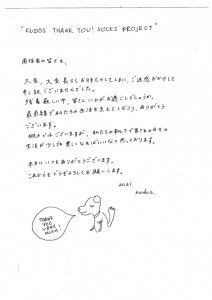 "KUDOS THANK YOU! SOCKS PROJECT"
関係者の皆さま、
大変、大変長らくお待たせしてしまい、ご迷惑おかけして
申し訳ございませんでした。
皆さんいかがお過ごしでしょうか。
最前線で私たちの生活を支えてくださり、ありがとう
ございます。
私たちの靴下で皆さまの日々の
生活が少しでも楽しくなればいいなと思っております。
本当にいつもありがとうございます。
これからもどうぞよろしくお願いします。
2021.
kudos.
THANK
YOU
VERY
MUCH!